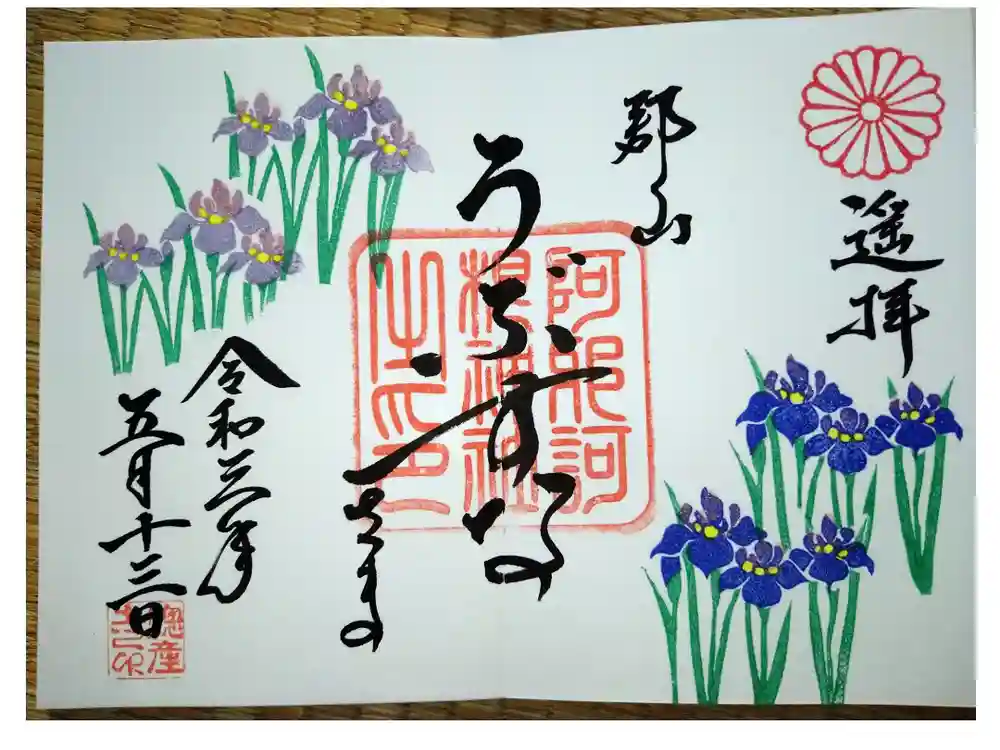 遙拝
郡山
うぶすな
さま
阿邪訶
根神社
之印
令和三年
五月十三日